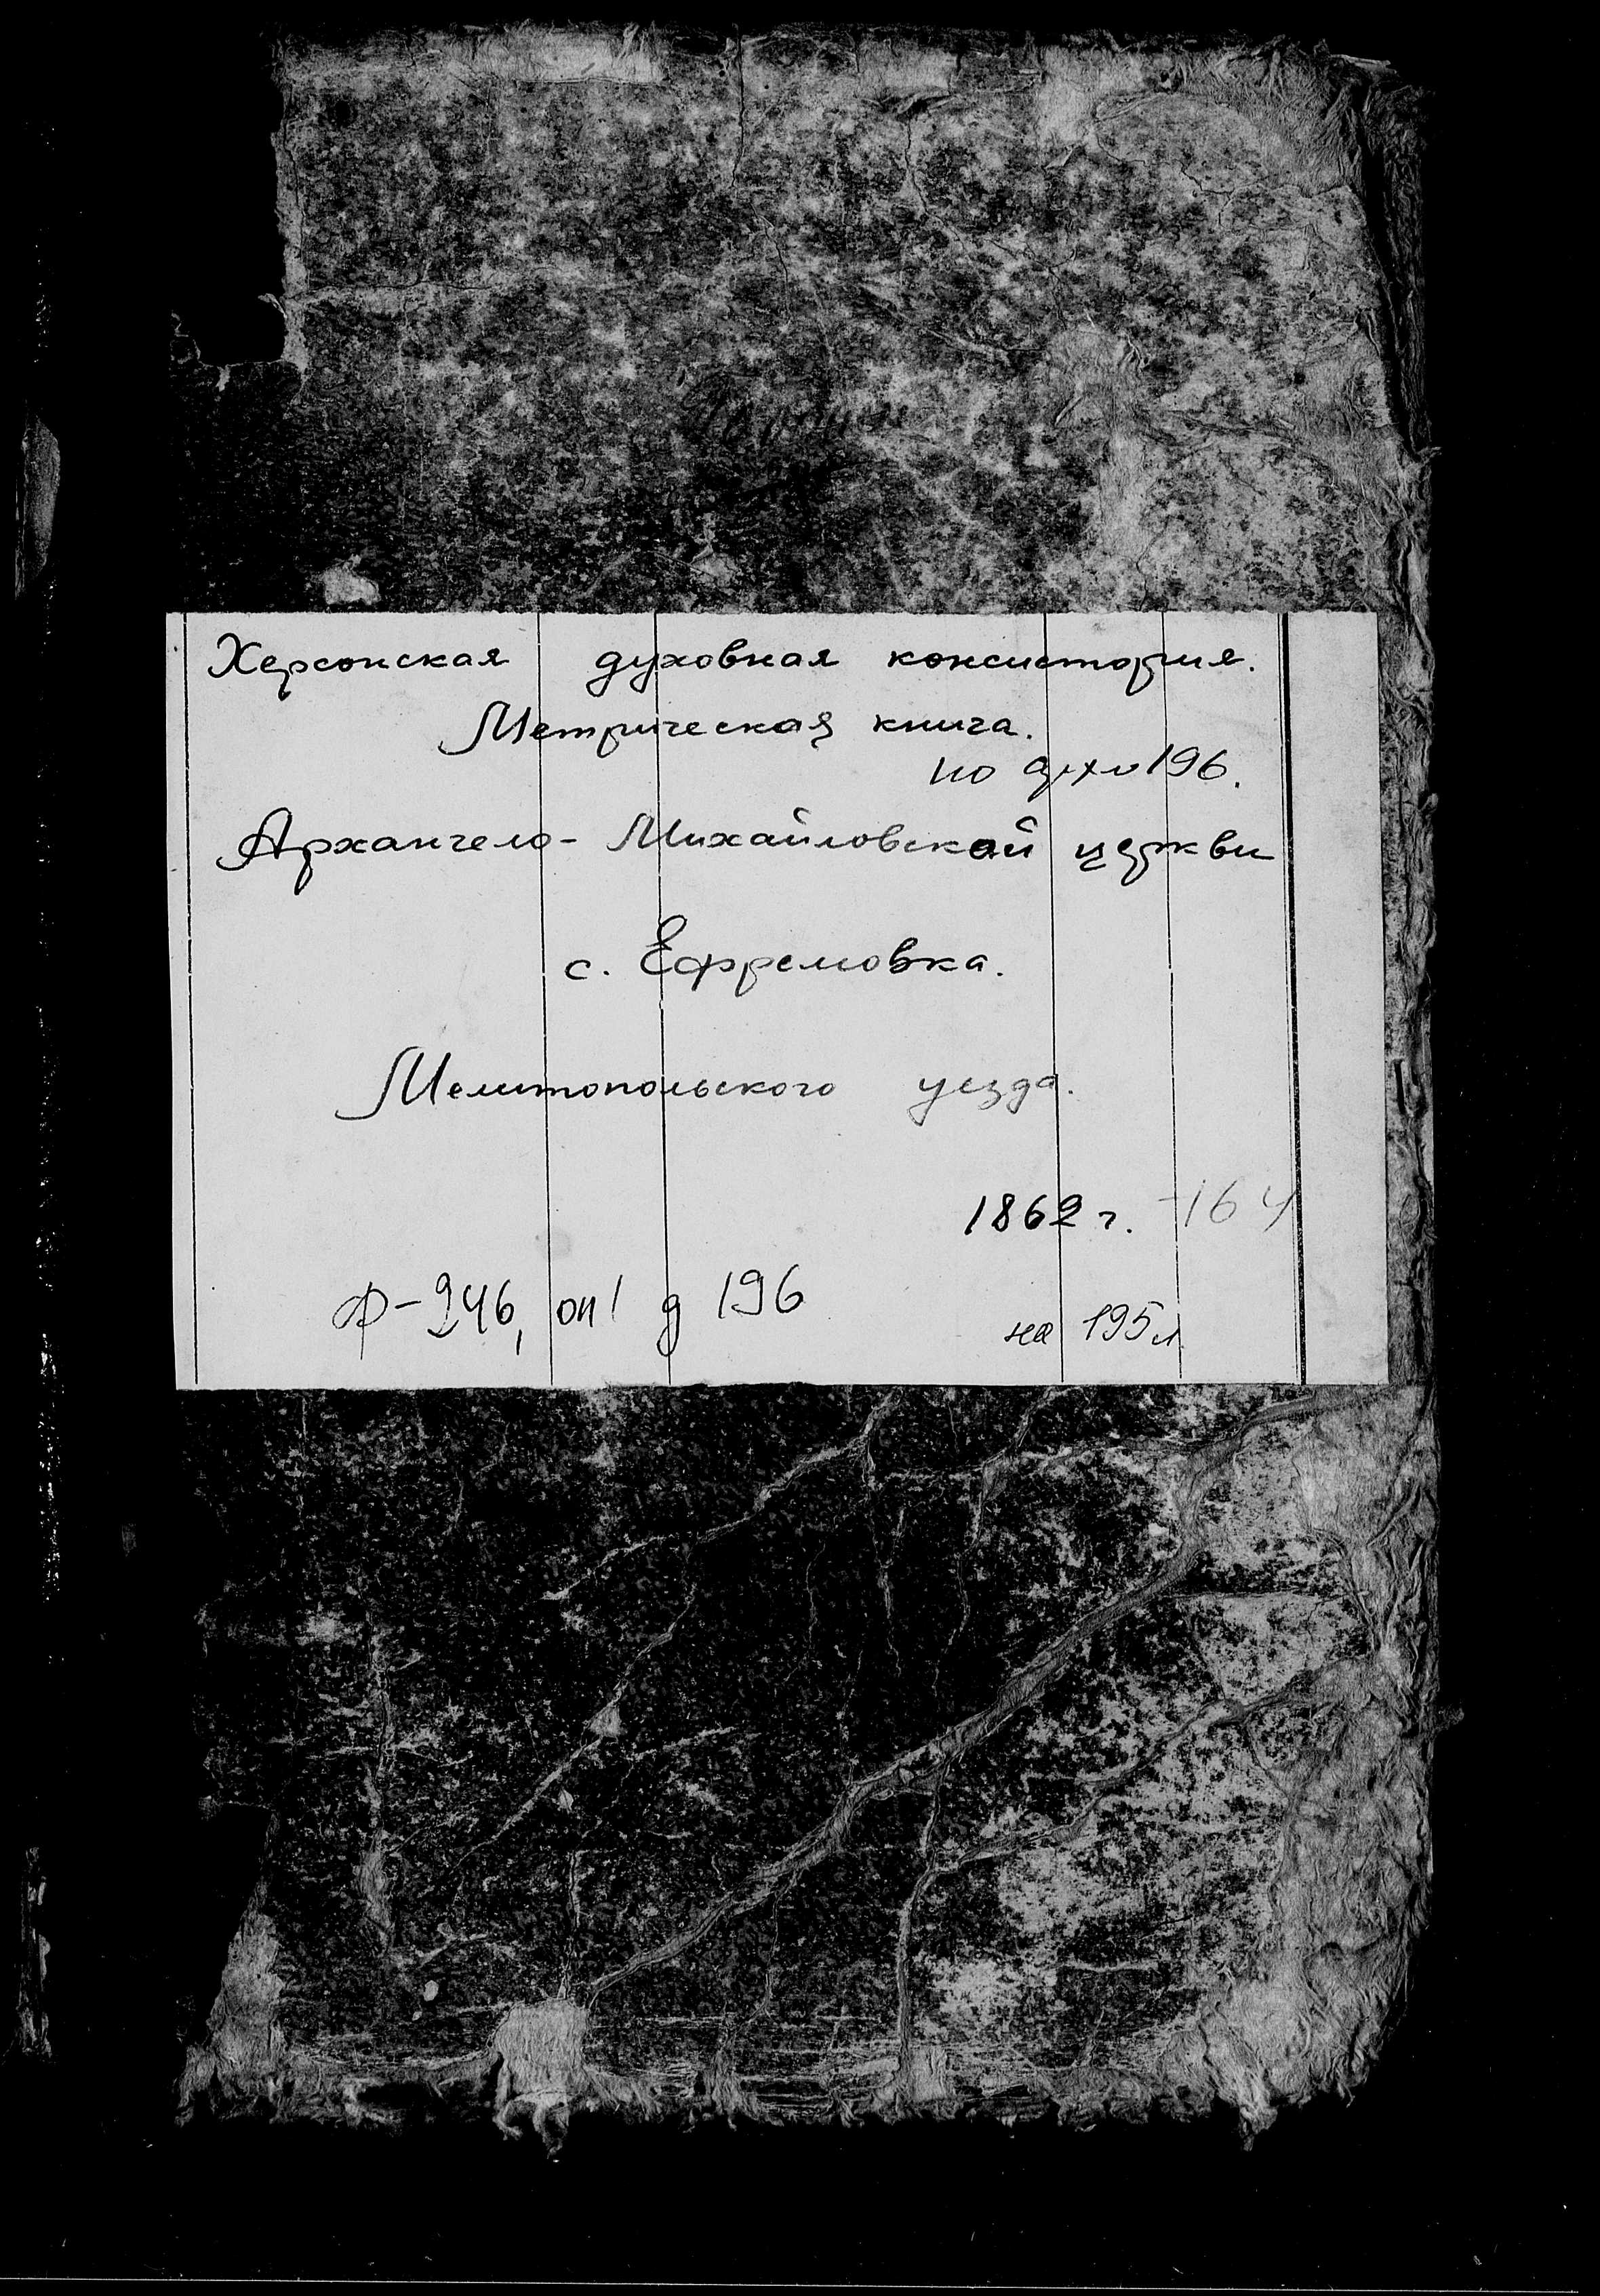 Херсонская духовная консистория.
Метрическая книга.
по архи 196.
Архангело-Михайловской церкви
с. Ефремовка.
Мелитопольского уезда.
1862 г. -164
Ф-246, оп1 д 196
на 195 л.